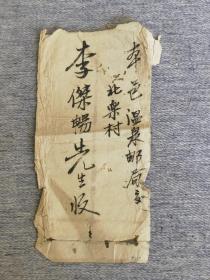 本邑温泉邮局交
北栗村
李傑暢先生收